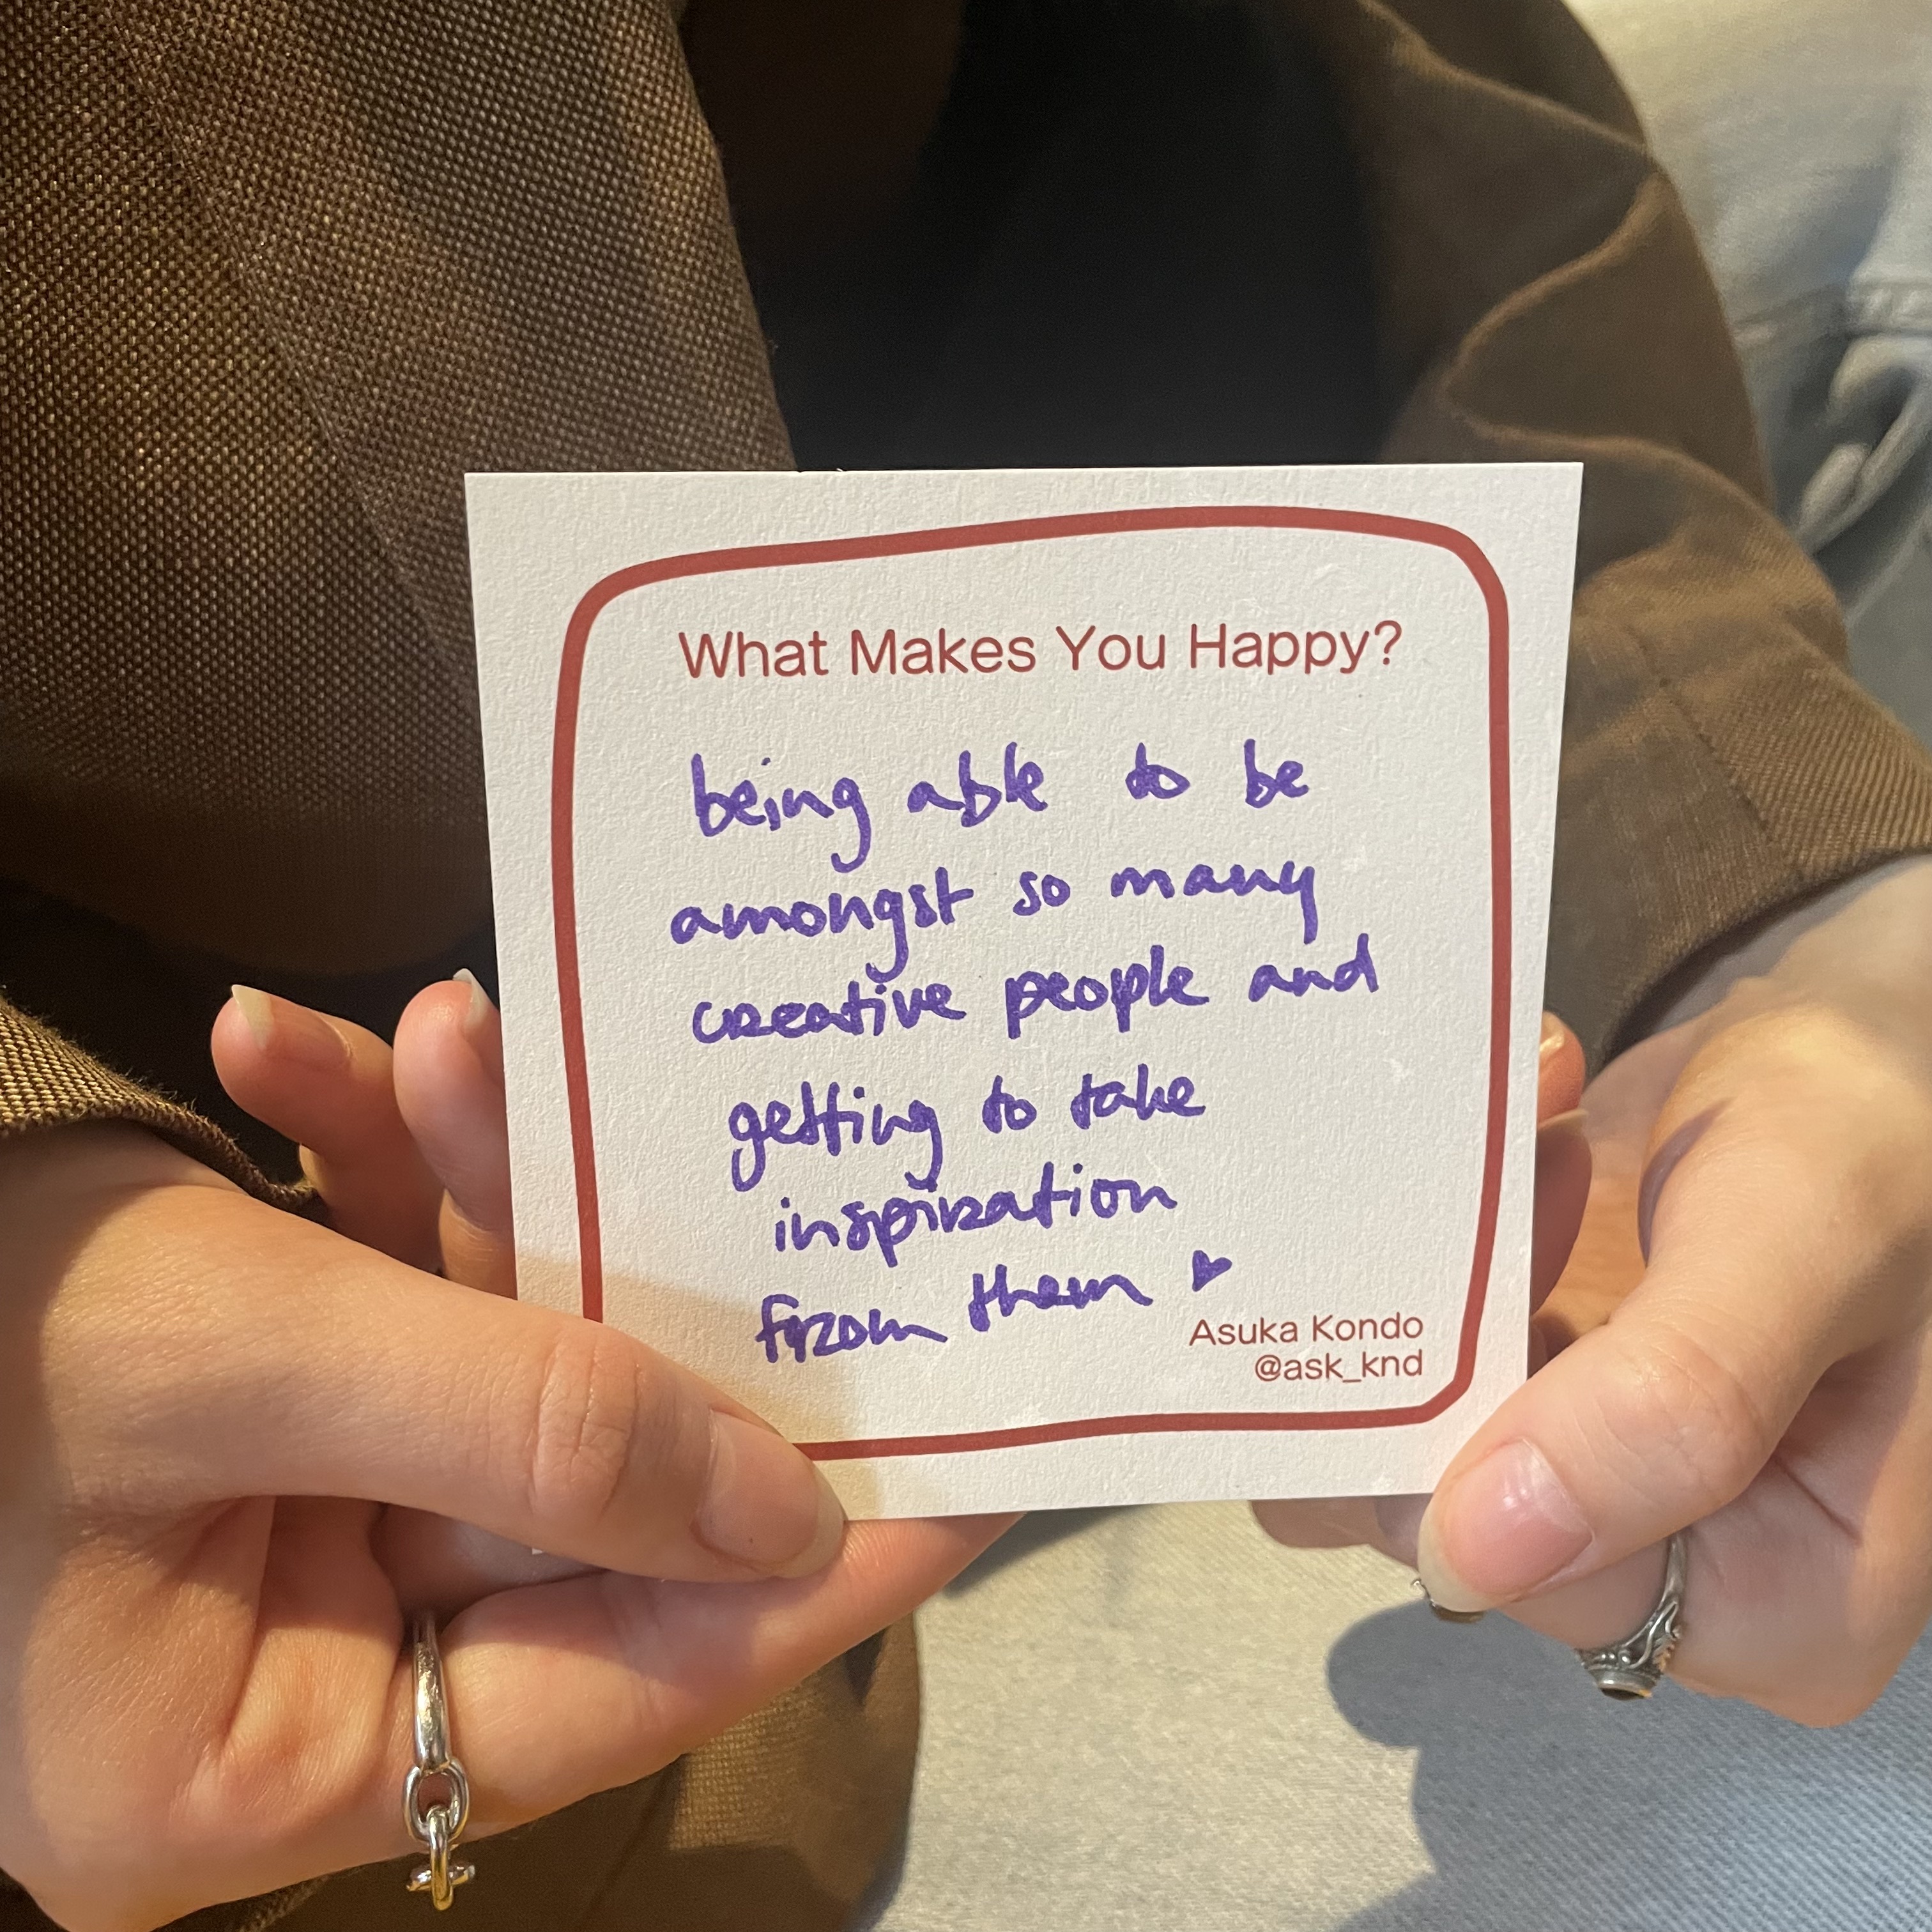 What Makes You Happy?
being able to be
amongst so many
creative people and
getting to take
inspiration
from them ♥
Asuka Kondo
@ask_knd